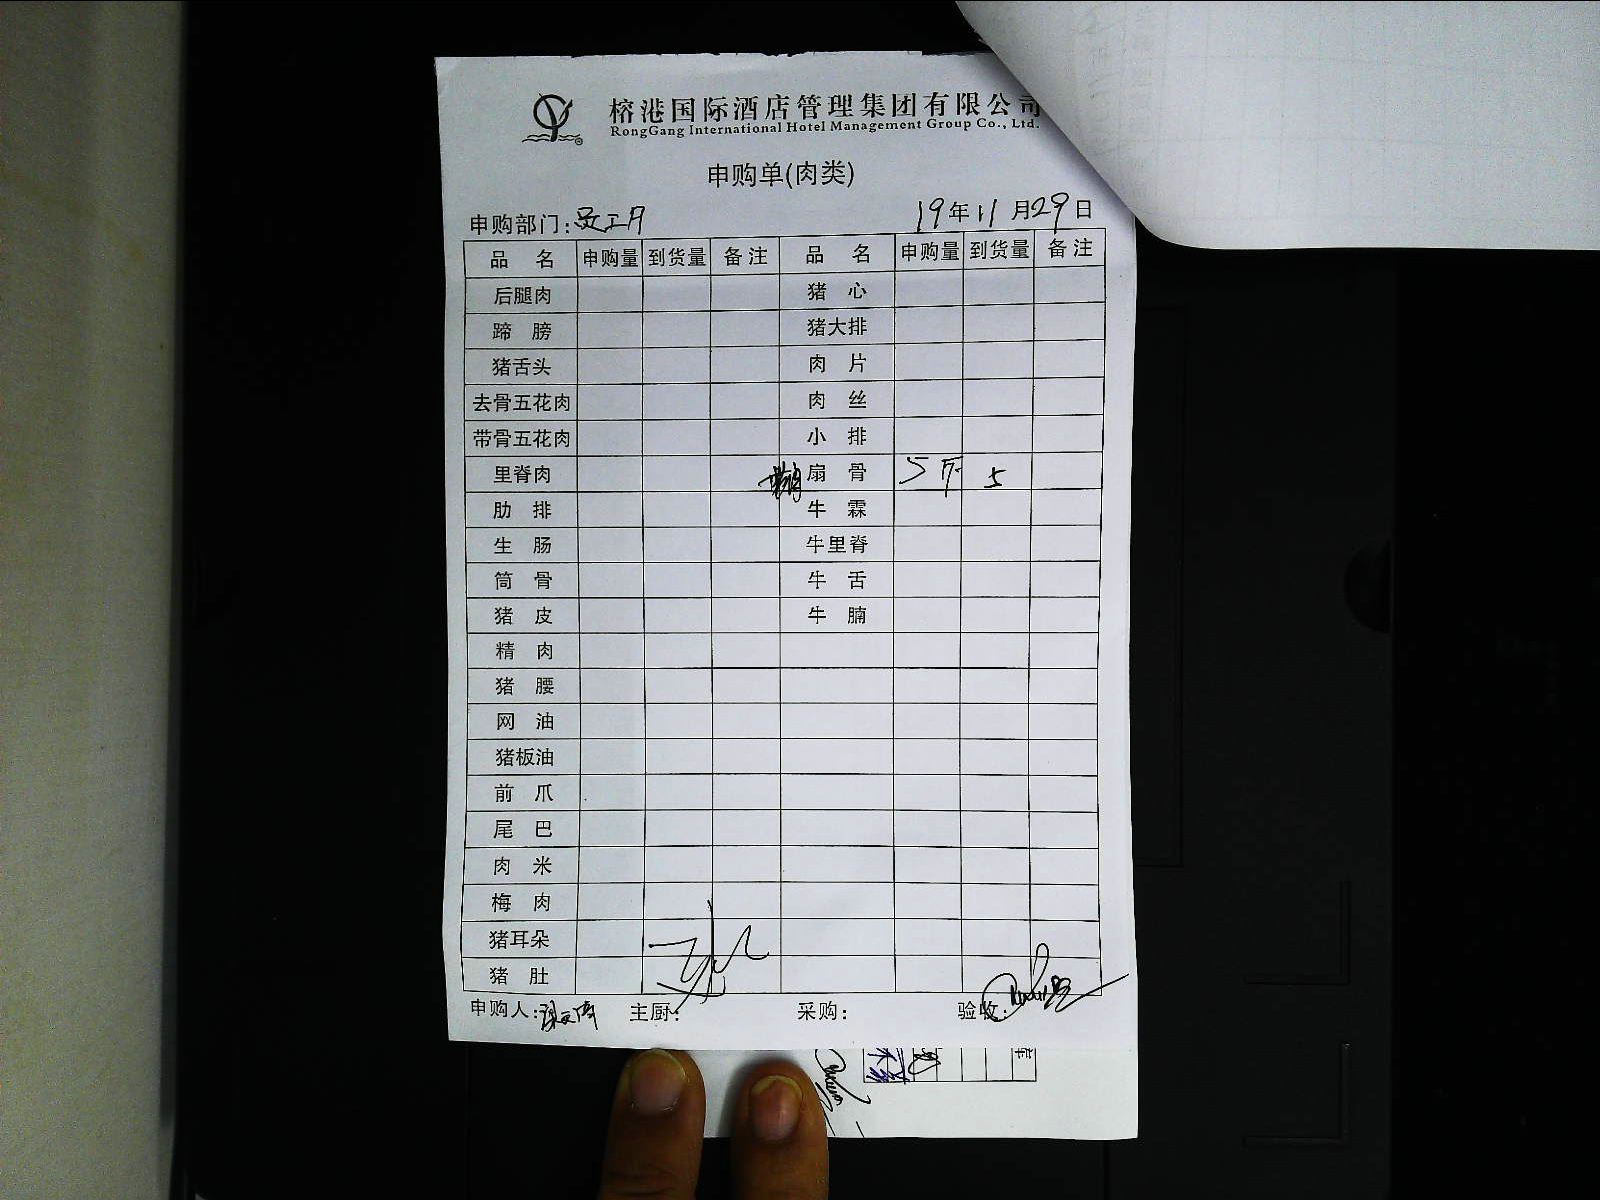 榕港国际酒店管理集团有限公司
RongGang International Hotel Management Group Co., Ltd.
申购单(肉类)
申购部门: 19年11月29日
品名 申购量 到货量 备注 品名 申购量 到货量 备注
后腿肉 猪心
蹄膀 猪大排
猪舌头 肉片
去骨五花肉 肉丝
带骨五花肉 小排
里脊肉 扇骨 5斤 5
肋排 牛霖
生肠 牛里脊
筒骨 牛舌
猪皮 牛腩
精肉
猪腰
网油
猪板油
前爪
尾巴
肉米
梅肉
猪耳朵
猪肚
申购人: 主厨: 采购: 验收: